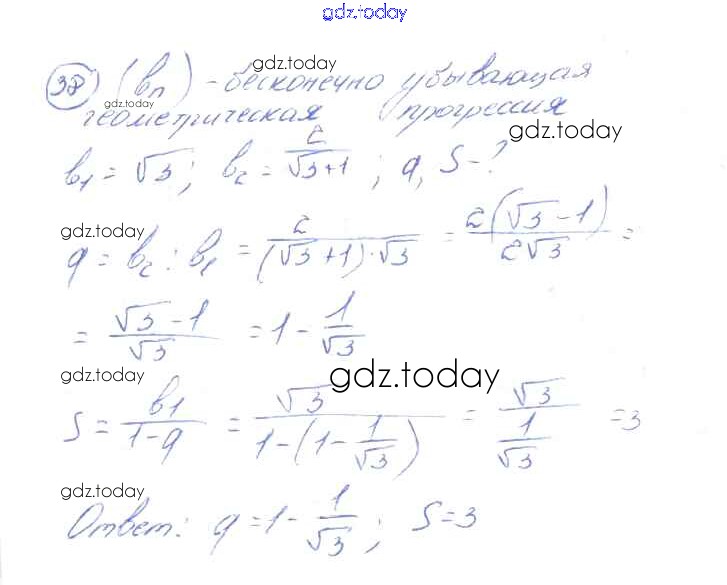 gdz.today
38) (bn) - бесконечно убывающая
gdz.today
геометрическая прогрессия
gdz.today
b1 = √3; b2 = 2/(√3+1); q, S - ?
gdz.today
q = b2 : b1 = 2/((√3+1)·√3) = 2(√3-1)/(2√3) =
= (√3-1)/√3 = 1 - 1/√3
gdz.today
gdz.today
S = b1/(1-q) = √3/(1-(1-1/√3)) = √3/(1/√3) = 3
gdz.today
Ответ: q = 1 - 1/√3; S = 3